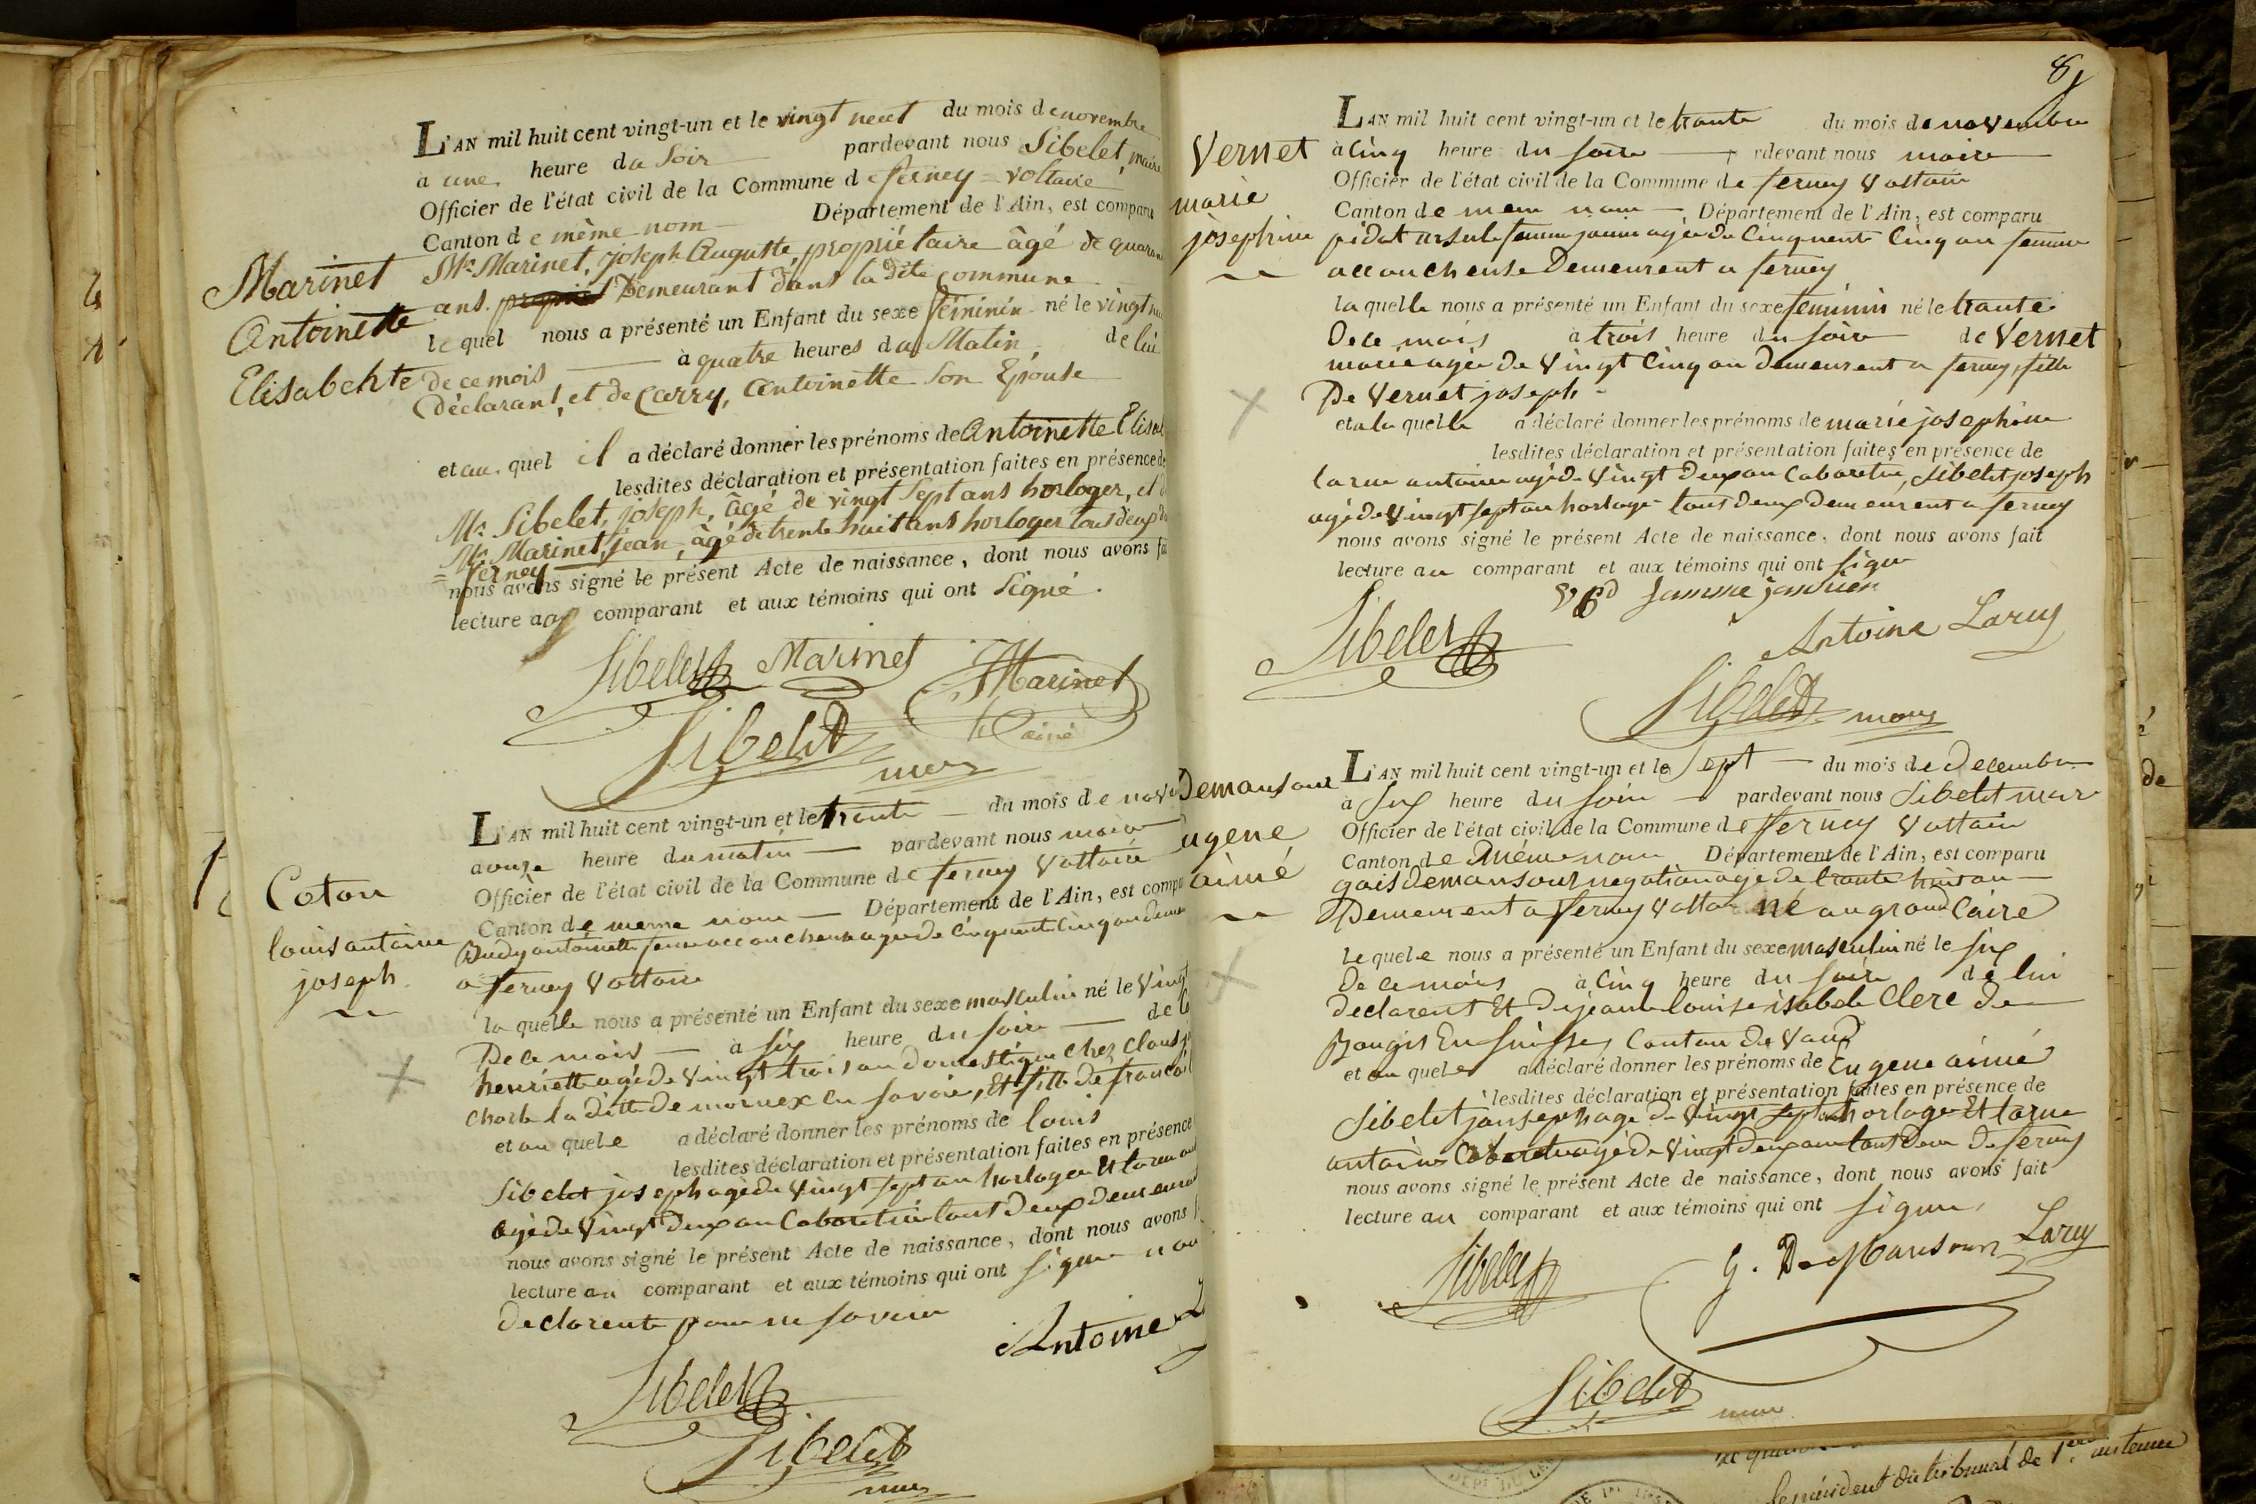 L'AN mil huit cent vingt-un et le vingt neuf du mois de novembre
à une heure du Soir pardevant nous Sibelet, maire
Officier de l'état civil de la Commune de ferney = voltaire
Canton de même nom Département de l'Ain, est comparu
Mr. Marinet, joseph Auguste, propriétaire âgé de
ans. Demeurant dans la dite commune
le quel nous a présenté un Enfant du sexe féminin né le vingt
de ce mois à quatre heures du Matin de lui
Déclarant, et de Carry, Antoinette Son Epouse
et au quel il a déclaré donner les prénoms de Antoinette
lesdites déclaration et présentation faites en présence de
Mr. Sibelet, joseph, âgé de vingt Sept ans horloger, et
Mr. Marinet, jean, âgé de trente huit ans horloger tous deux
= ferney
nous avons signé le présent Acte de naissance, dont nous avons
lecture aux comparant et aux témoins qui ont Signé.
Marinet
Antoinette
Elisabehte
Sibelet Marinet
Marinet
L'ainé
Sibelet
L'AN mil huit cent vingt-un et le trante du mois de
a onze heure du matin pardevant nous maire
Officier de l'état civil de la Commune de ferney Voltaire
Canton de meme nom Département de l'Ain, est
antoinette accoucheuse agée de Cinquante Cinq an
a ferney Voltaire
la quelle nous a présenté un Enfant du sexe masculin né le
De ce mois à six heure du soire de
henriette agé de Vingt trois an domestique chez
la ditte de mornex en savoie, Et fille de
et au quele a déclaré donner les prénoms de louis
lesdites déclaration et présentation faites en présence
Sibelet joseph agé de Vingt sept an horloger Et
agé de Vingt Deux an Cabaretier tout Deux
nous avons signé le présent Acte de naissance, dont nous avons
lecture au comparant et aux témoins qui ont signe
Declarente pour ne savoir
Coton
louis antoine
joseph
Antoine
Sibelet
Sibelet
8
L'AN mil huit cent vingt-un et le trante du mois de novembre
à Cinq heure du soire rdevant nous maire
Officier de l'état civil de la Commune de ferney Voltaire
Canton de meme nom Département de l'Ain, est comparu
ursule agée de Cinquente Cinq an femme
accoucheuse Demeurent a ferney
la quelle nous a présenté un Enfant du sexe feminin né le trante
De ce mois à trois heure du soire de Vernet
marie agée de Vingt Cinq an demeurent a ferney, fille
De Vernet joseph
et a la quelle a déclaré donner les prénoms de marie josephine
lesdites déclaration et présentation faites en présence de
larue antoine agé de Vingt Deux an Cabaretier, Sibelet joseph
agé de Vingt sept an horloger tous Deux Demeurent a ferney
nous avons signé le présent Acte de naissance, dont nous avons fait
lecture au comparant et aux témoins qui ont signe
Vernet
marie
josephine
Sibelet
Antoine Laruy
Sibelet
L'AN mil huit cent vingt-un et le Sept du mois de Decembre
à six heure du soire pardevant nous Sibelet
Officier de l'état civil de la Commune de ferney Voltaire
Canton de même nom Département de l'Ain, est comparu
demansour agé de trante huit an
Demeurent a ferney né au grand Caire
le quele nous a présenté un Enfant du sexe masculin né le six
De ce mois à Cinq heure du soire de lui
declarent Et De jeanne louise isabele Clerc de
Bougis En suisse, Canton de Vaud
et au quele a déclaré donner les prénoms de Eugene aimé
lesdites déclaration et présentation faites en présence de
Sibelet agé de Vingt sept an horloger Et larue
antoine agé de Vingt Deux an tout Deux de ferney
nous avons signé le présent Acte de naissance, dont nous avons fait
lecture au comparant et aux témoins qui ont signe
Demansour
Eugene
aimé
Sibelet
G. DeMansour Laruy
Sibelet
du tribunal de